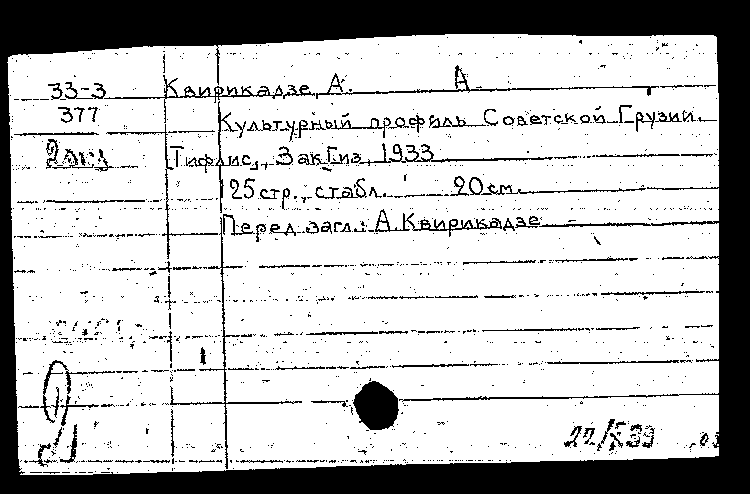 33-3 Квирикадзе, А. А
377 Культурный профиль Советской Грузии.
2 экз Тифлис, ЗакГиз, 1933
125 стр., с табл. 20 см.
Перед загл.: А. Квирикадзе
22/X 39